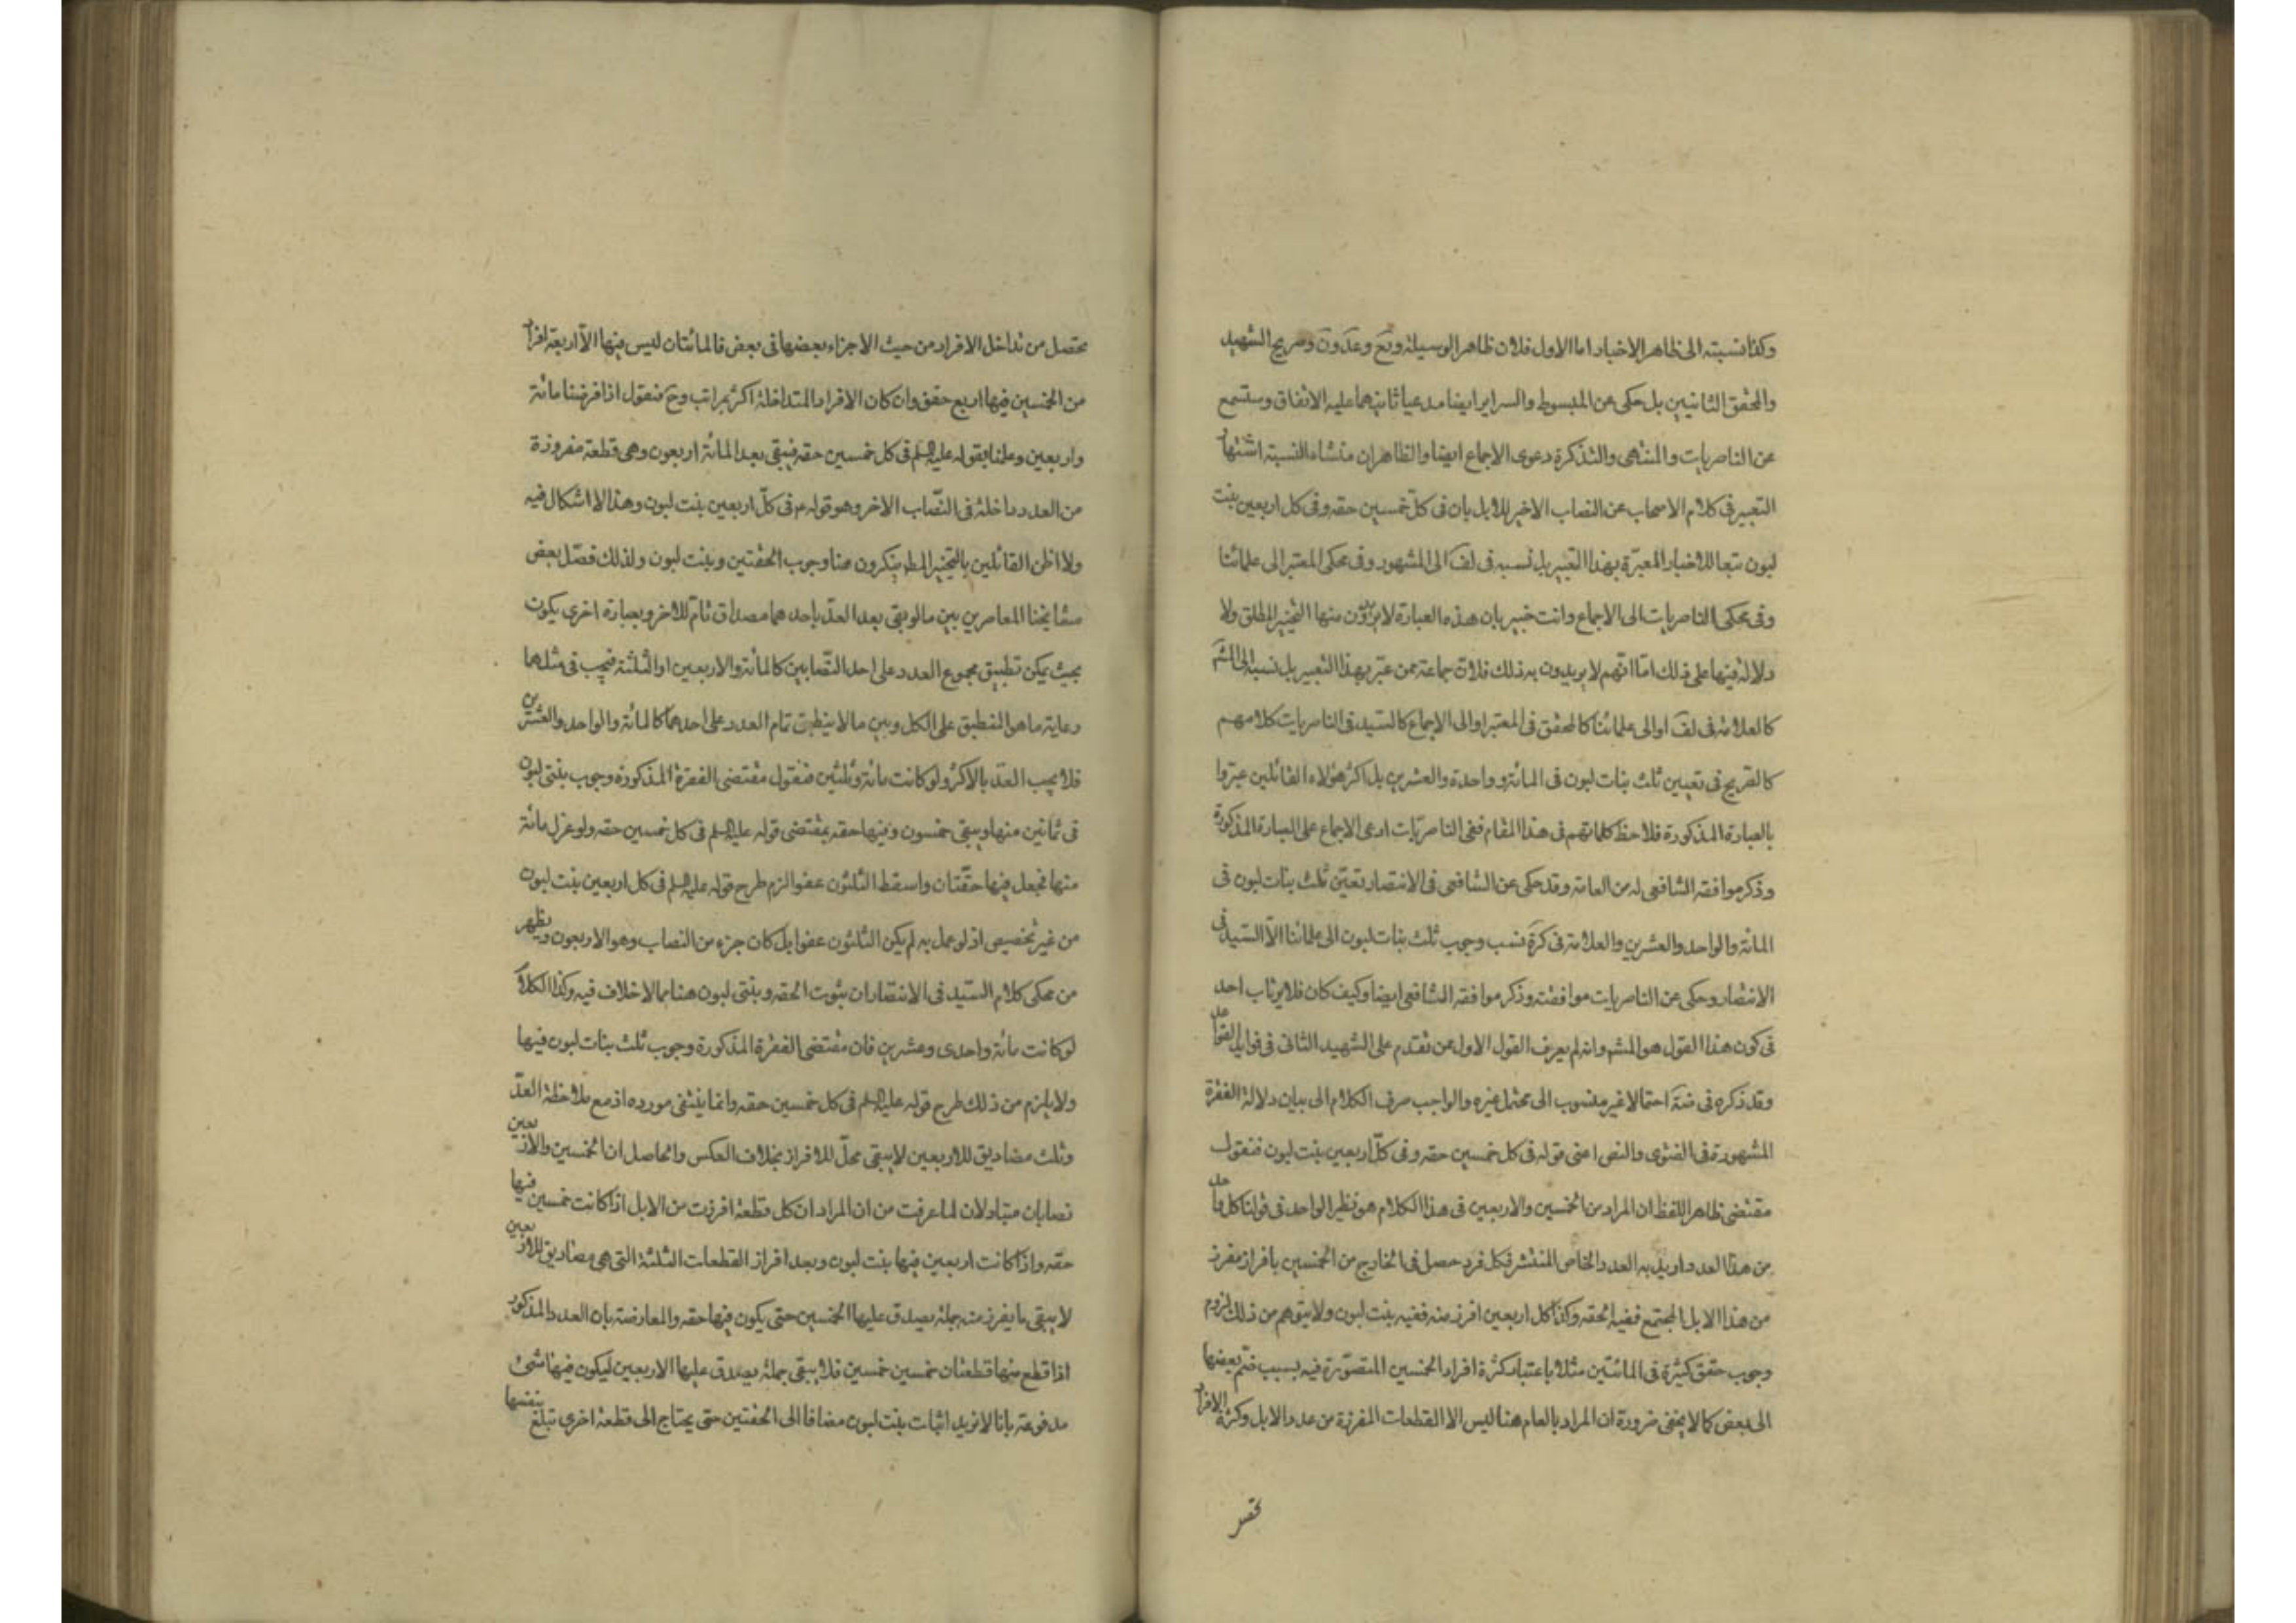 وكذا نسبته الى ظاهر الاخبار اما الاول فلان ظاهر الوسيلة وتع وعد ون وصريح الشهيد
والمحقق الثانيين بل حكى عن المبسوط والسراير ايضا مدعيا ثانيهما عليه الاتفاق وستسمع
عن الناصريات والمنتهى والتذكرة دعوى الاجماع ايضا والظاهر ان منشاء النسبة اشتهار
التعبير فى كلام الاصحاب عن النصاب الاخير للابل بان فى كلّ خمسين حقه وفى كل اربعين بنت
لبون تبعا للاخبار المعبّرة بهذا التعبير بل نسبه فى لف الى المشهور وفى محكى المعتبر الى علمائنا
وفى محكى الناصريات الى الاجماع وانت خبير بان هذه العبارة لا يريدون منها التخيير المطلق ولا
دلالة فيها على ذلك امّا انهم لا يريدون به ذلك فلانّ جماعة ممن عبّر بهذا التعبير بل نسبه الى المشهَ
كالعلامة فى لف او الى علمائنا كالمحقق فى المعتبر او الى الاجماع كالسيّد فى الناصريات كلامهم
كالصريح فى تعيين ثلث بنات لبون فى المائة وواحدة والعشرين بل اكثر هؤلاء القائلين عبّروا
بالعبارة المذكورة فلاحظ كلماتهم فى هذا المقام ففى الناصريّات ادعى الاجماع على العبارة المذكورة
وذكر موافقه الشافعى له من العامة وقد حكى عن الشافعى فى الانتصار تعيّن ثلث بنات لبون فى
المائة والواحد والعشرين والعلامة فى كرة نسب وجوب ثلث بنات لبون الى علمائنا الاّ السيّد فى
الانتصار وحكى عن الناصريات موافقته وذكر موافقه الشافعى ايضا وكيف كان فلا يرتاب احد
فى كون هذا القول هو المشهَ وانه لم يعرف القول الاول عن تقدم على الشهيد الثانى فى فوايد القواعد
وقد ذكره فى ضة احتمالا غير منسوب الى محتمل غيره والواجب صرف الكلام الى بيان دلالة الفقرة
المشهورة فى الفتوى والنص اعنى قوله فى كل خمسين حقه وفى كلّ اربعين بنت لبون فنقول
مقتضى ظاهر اللفظ ان المراد من الخمسين والاربعين فى هذا الكلام هو نظير الواحد فى قولنا كل واحد
من هذا العدد اريد به العدد الخاص المنتشر فكل فرد حصل فى الخارج من الخمسين بافراز مفرز
من هذا الابل المجتمع ففيه الحقه وكذا كل اربعين افرز منه ففيه بنت لبون ولا يتوهم من ذلك لزوم
وجوب حقق كثيرة فى المائتين مثلا باعتبار كثرة افراد الخمسين المتصوّرة فيه بسبب ضم بعضها
الى بعض كما لا يخفى ضرورة ان المراد بالعام هنا ليس الا القطعات المفرزة من عدد الابل وكثرة الافراد
تحصل من تداخل الافراد من حيث الاجزاء بعضها فى بعض فالمائتان ليس فيها الاّ اربعة افراد
من الخمسين فيها اربع حقق وان كان الافراد المتداخلة اكثر بمراتب وح فنقول اذا فرضنا مائة
واربعين وعلمنا بقوله عليه السلم فى كل خمسين حقه فيبقى بعد المائة اربعون وهى قطعة مفروزة
من العدد داخلة فى النّصاب الاخر وهو قوله م فى كلّ اربعين بنت لبون وهذا لا اشكال فيه
ولا اظن القائلين بالتخيير المطلق ينكرون هنا وجوب الحقتين وبنت لبون ولذلك فصّل بعض
مشايخنا المعاصرين بين ما لو بقى بعد العدّ باحدهما مصداق تامّ للاخر وبعبارة اخرى يكون
بحيث يمكن تطبيق مجموع العدد على احد النّصابين كالمائة والاربعين او الثلثة فيجب فى مثلهما
رعاية ما هو المنطبق على الكل وبين ما لا ينطبق تمام العدد على احدهما كالمائة والواحد والعشرين
فلا يجب العدّ بالاكثر ولو كانت مائة وثلثين فنقول مقتضى الفقرة المذكورة وجوب بنتى لبون
فى ثمانين منها ويبقى خمسون وفيها حقه بمقتضى قوله عليه السلم فى كل خمسين حقه ولو عزل مائة
منها فجعل فيها حقّتان واسقط الثلثون عفوا لزم طرح قوله عليه السلم فى كل اربعين بنت لبون
من غير تخصيص اذ لو عمل به لم يكن الثلثون عفوا بل كان جزء من النصاب وهو الاربعون ويظهر
من محكى كلام السيّد فى الانتصار ان ثبوت الحقه وبنتى لبون هنا مما لا خلاف فيه وكذا الكلام
لو كانت مائة واحدى وعشرين فان مقتضى الفقرة المذكورة وجوب ثلث بنات لبون فيها
ولا يلزم من ذلك طرح قوله عليه السلم فى كل خمسين حقه وانما ينتفى مورده اذ مع ملاحظة العدّ
وثلث مصاديق للاربعين لا يبقى محلّ للافراز بخلاف العكس والحاصل ان الخمسين والاربعين
نصابان متبادلان لما عرفت من ان المراد ان كل قطعة افرزت من الابل اذا كانت خمسين فيها
حقه واذا كانت اربعين فيها بنت لبون وبعد افراز القطعات الثلثة التى هى مصاديق للاربعين
لا يبقى ما يفرز منه جملة يصدق عليها الخمسين حتى يكون فيها حقه والمعارضة بان العدد المذكور
اذا قطع منها قطعتان خمسين خمسين فلا يبقى جملة يصدق عليها الاربعين ليكون فيها شئ
مدفوعة بانا لا نريد اثبات بنت لبون مضافا الى الحقتين حتى يحتاج الى قطعة اخرى تبلغ بنفسها